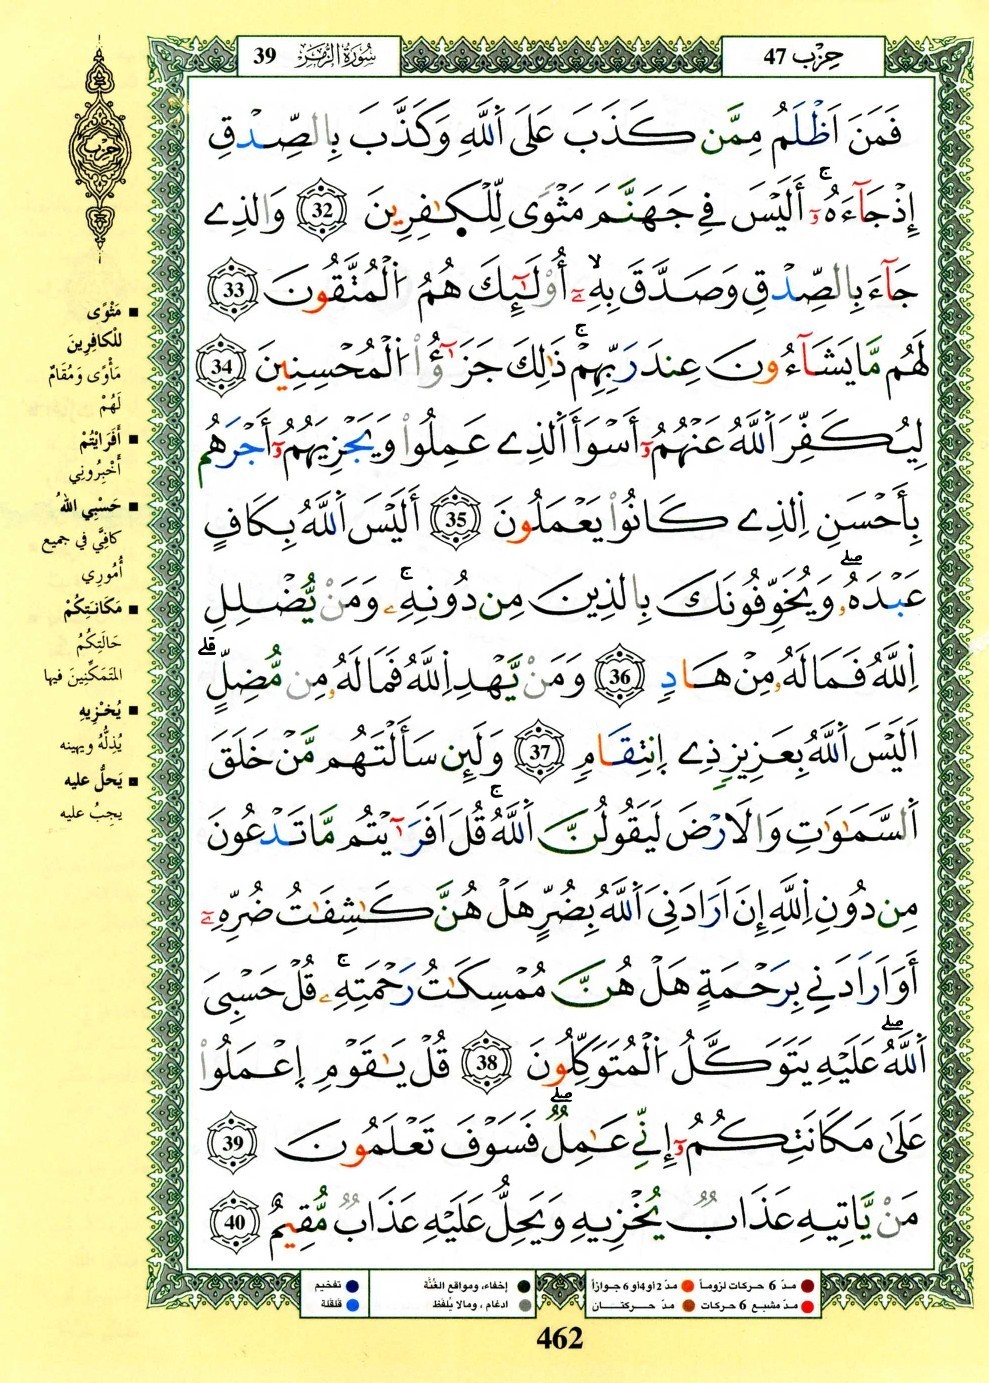 حِزْب 47
سُورَةُ الزُّمَر 39
فَمَنَ اَظْلَمُ مِمَّن كَذَبَ عَلَى اَللَّهِ وَكَذَّبَ بِالصِّدْقِ
إِذْ جَآءَهُۥٓ أَلَيْسَ فِے جَهَنَّمَ مَثْوًى لِّلْكٰفِرِينَ 32 وَالذِے
جَآءَ بِالصِّدْقِ وَصَدَّقَ بِهِۦٓ أُوْلَٰٓئِكَ هُمُ اُلْمُتَّقُونَ 33
لَهُم مَّا يَشَآءُونَ عِندَ رَبِّهِمْ ذَٰلِكَ جَزَٰٓؤُاْ اُلْمُحْسِنِينَ 34
لِيُكَفِّرَ اَللَّهُ عَنْهُمُۥٓ أَسْوَأَ اَلذِے عَمِلُواْ وَيَجْزِيَهُمُۥٓ أَجْرَهُم
بِأَحْسَنِ اِلذِے كَانُواْ يَعْمَلُونَ 35 أَلَيْسَ اَللَّهُ بِكَافٍ
عَبْدَهُۥ وَيُخَوِّفُونَكَ بِالذِينَ مِن دُونِهِۦ وَمَنْ يُّضْلِلِ
اِللَّهُ فَمَا لَهُۥ مِنْ هَادٍ 36 وَمَنْ يَّهْدِ اِللَّهُ فَمَا لَهُۥ مِن مُّضِلٍّ
اَلَيْسَ اَللَّهُ بِعَزِيزٍ ذِے اِنتِقَامٍ 37 وَلَئِن سَأَلْتَهُم مَّنْ خَلَقَ
اَلسَّمَٰوَٰتِ وَالَارْضَ لَيَقُولُنَّ اَللَّهُ قُلَ اَفَرَٰٓيْتُم مَّا تَدْعُونَ
مِن دُونِ اِللَّهِ إِنَ اَرَادَنِىَ اَللَّهُ بِضُرٍّ هَلْ هُنَّ كَٰشِفَٰتُ ضُرِّهِۦٓ
أَوَ اَرَادَنِے بِرَحْمَةٍ هَلْ هُنَّ مُمْسِكَٰتُ رَحْمَتِهِۦ قُلْ حَسْبِىَ
اَللَّهُ عَلَيْهِ يَتَوَكَّلُ اُلْمُتَوَكِّلُونَ 38 قُلْ يَٰقَوْمِ اِعْمَلُواْ
عَلَىٰ مَكَانَتِكُمُۥٓ إِنِّے عَٰمِلٌ فَسَوْفَ تَعْلَمُونَ 39
مَنْ يَّاتِيهِ عَذَابٌ يُخْزِيهِ وَيَحِلُّ عَلَيْهِ عَذَابٌ مُّقِيمٌ 40
حِزْب
مَثْوًى
للْكافِرِينَ
مَأْوًى وَمُقَامٌ
لَهُمْ
أَفَرَايْتُمْ
أَخْبِرُونِي
حَسْبِي اللهُ
كافِيَّ في جميع
أُمُورِي
مَكَانَتِكُمْ
حَالَتِكُمُ
المتَمَكِّنِينَ فيها
يُخْزِيهِ
يُذِلُّهُ ويهينه
يَحلُّ عليه
يجِبُ عليه
مدّ 6 حركات لزوماً مدّ 2 أو 4 أو 6 جوازاً
مدّ مشبع 6 حركات مدّ حــركتــــان
إخفاء، ومواقع الغُنَّة
ادغام ، ومالا يُلفظ
تفخيم
قلقلة
462